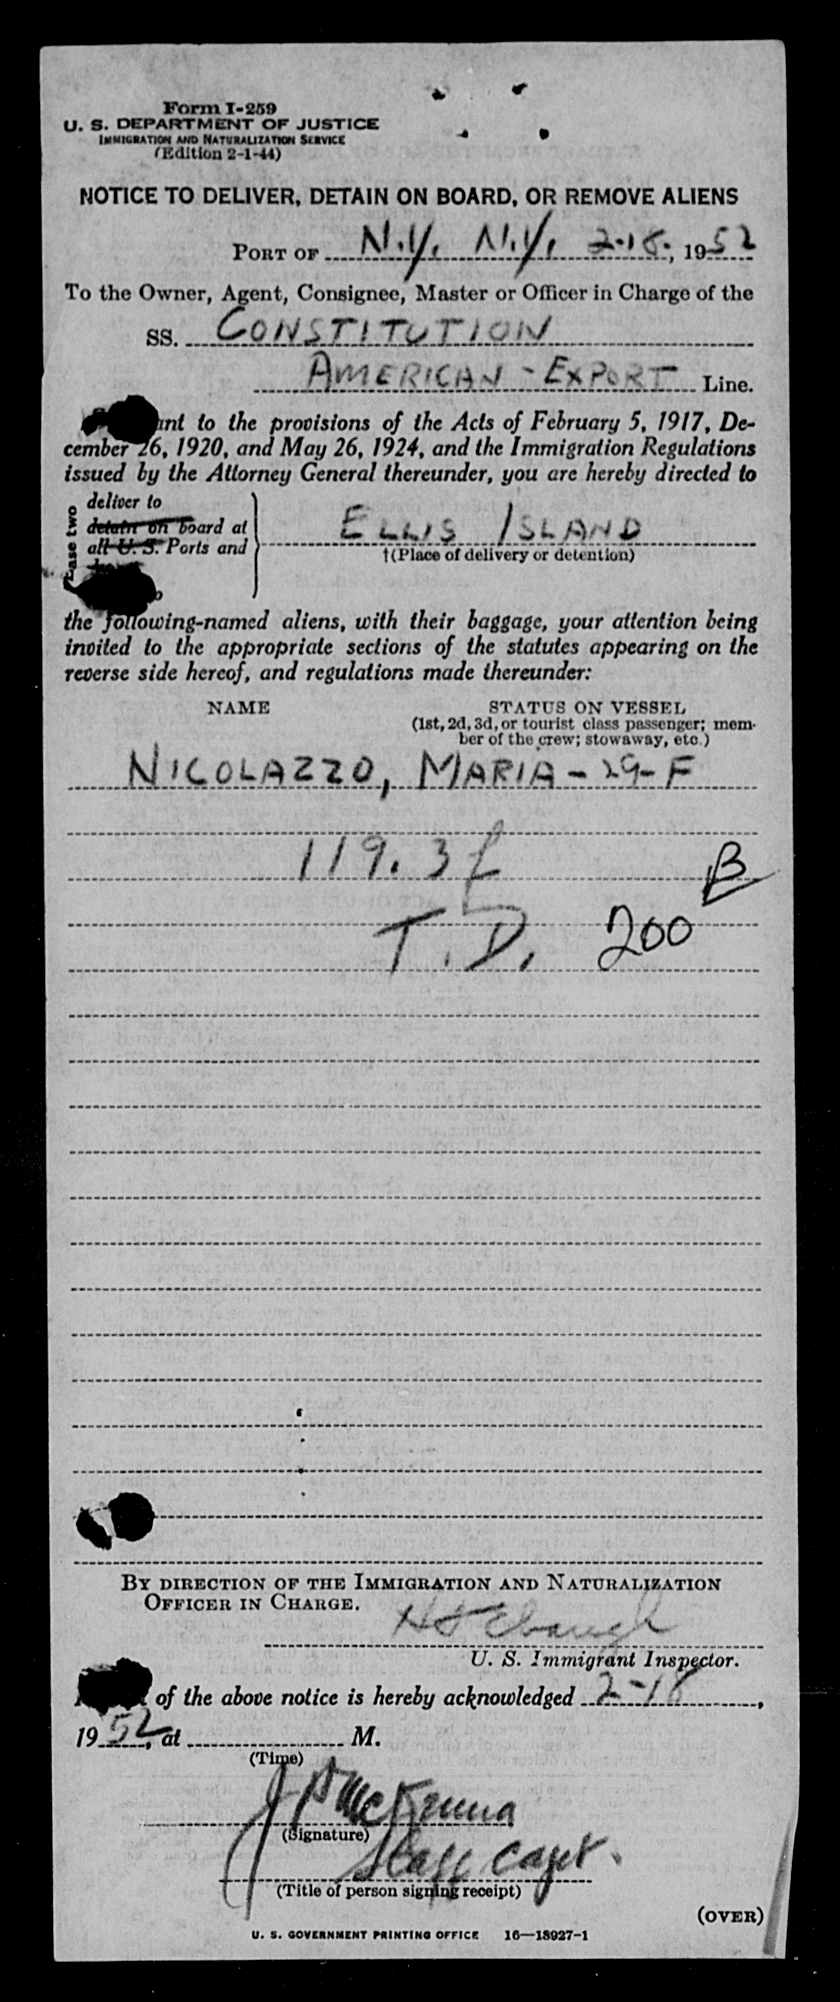 Form I-259
U. S. DEPARTMENT OF JUSTICE
IMMIGRATION AND NATURALIZATION SERVICE
(Edition 2-1-44)
NOTICE TO DELIVER, DETAIN ON BOARD, OR REMOVE ALIENS
PORT OF N.Y. N.Y. 2-18-, 1952
To the Owner, Agent, Consignee, Master or Officer in Charge of the
SS. CONSTITUTION
AMERICAN - EXPORT Line.
ant to the provisions of the Acts of February 5, 1917, De-
cember 26, 1920, and May 26, 1924, and the Immigration Regulations
issued by the Attorney General thereunder, you are hereby directed to
deliver to
detain on board at
all U. S. Ports and
ELLIS ISLAND
†(Place of delivery or detention)
the following-named aliens, with their baggage, your attention being
invited to the appropriate sections of the statutes appearing on the
reverse side hereof, and regulations made thereunder:
NAME STATUS ON VESSEL
(1st, 2d, 3d, or tourist class passenger; mem-
ber of the crew; stowaway, etc.)
NICOLAZZO, MARIA - 29 - F
119.3
B
T.D. 200
BY DIRECTION OF THE IMMIGRATION AND NATURALIZATION
OFFICER IN CHARGE.
U. S. Immigrant Inspector.
of the above notice is hereby acknowledged 2-18,
1952, at M.
(Time)
J McKenna
(Signature)
Staff Capt.
(Title of person signing receipt)
(OVER)
U. S. GOVERNMENT PRINTING OFFICE 16—18927-1